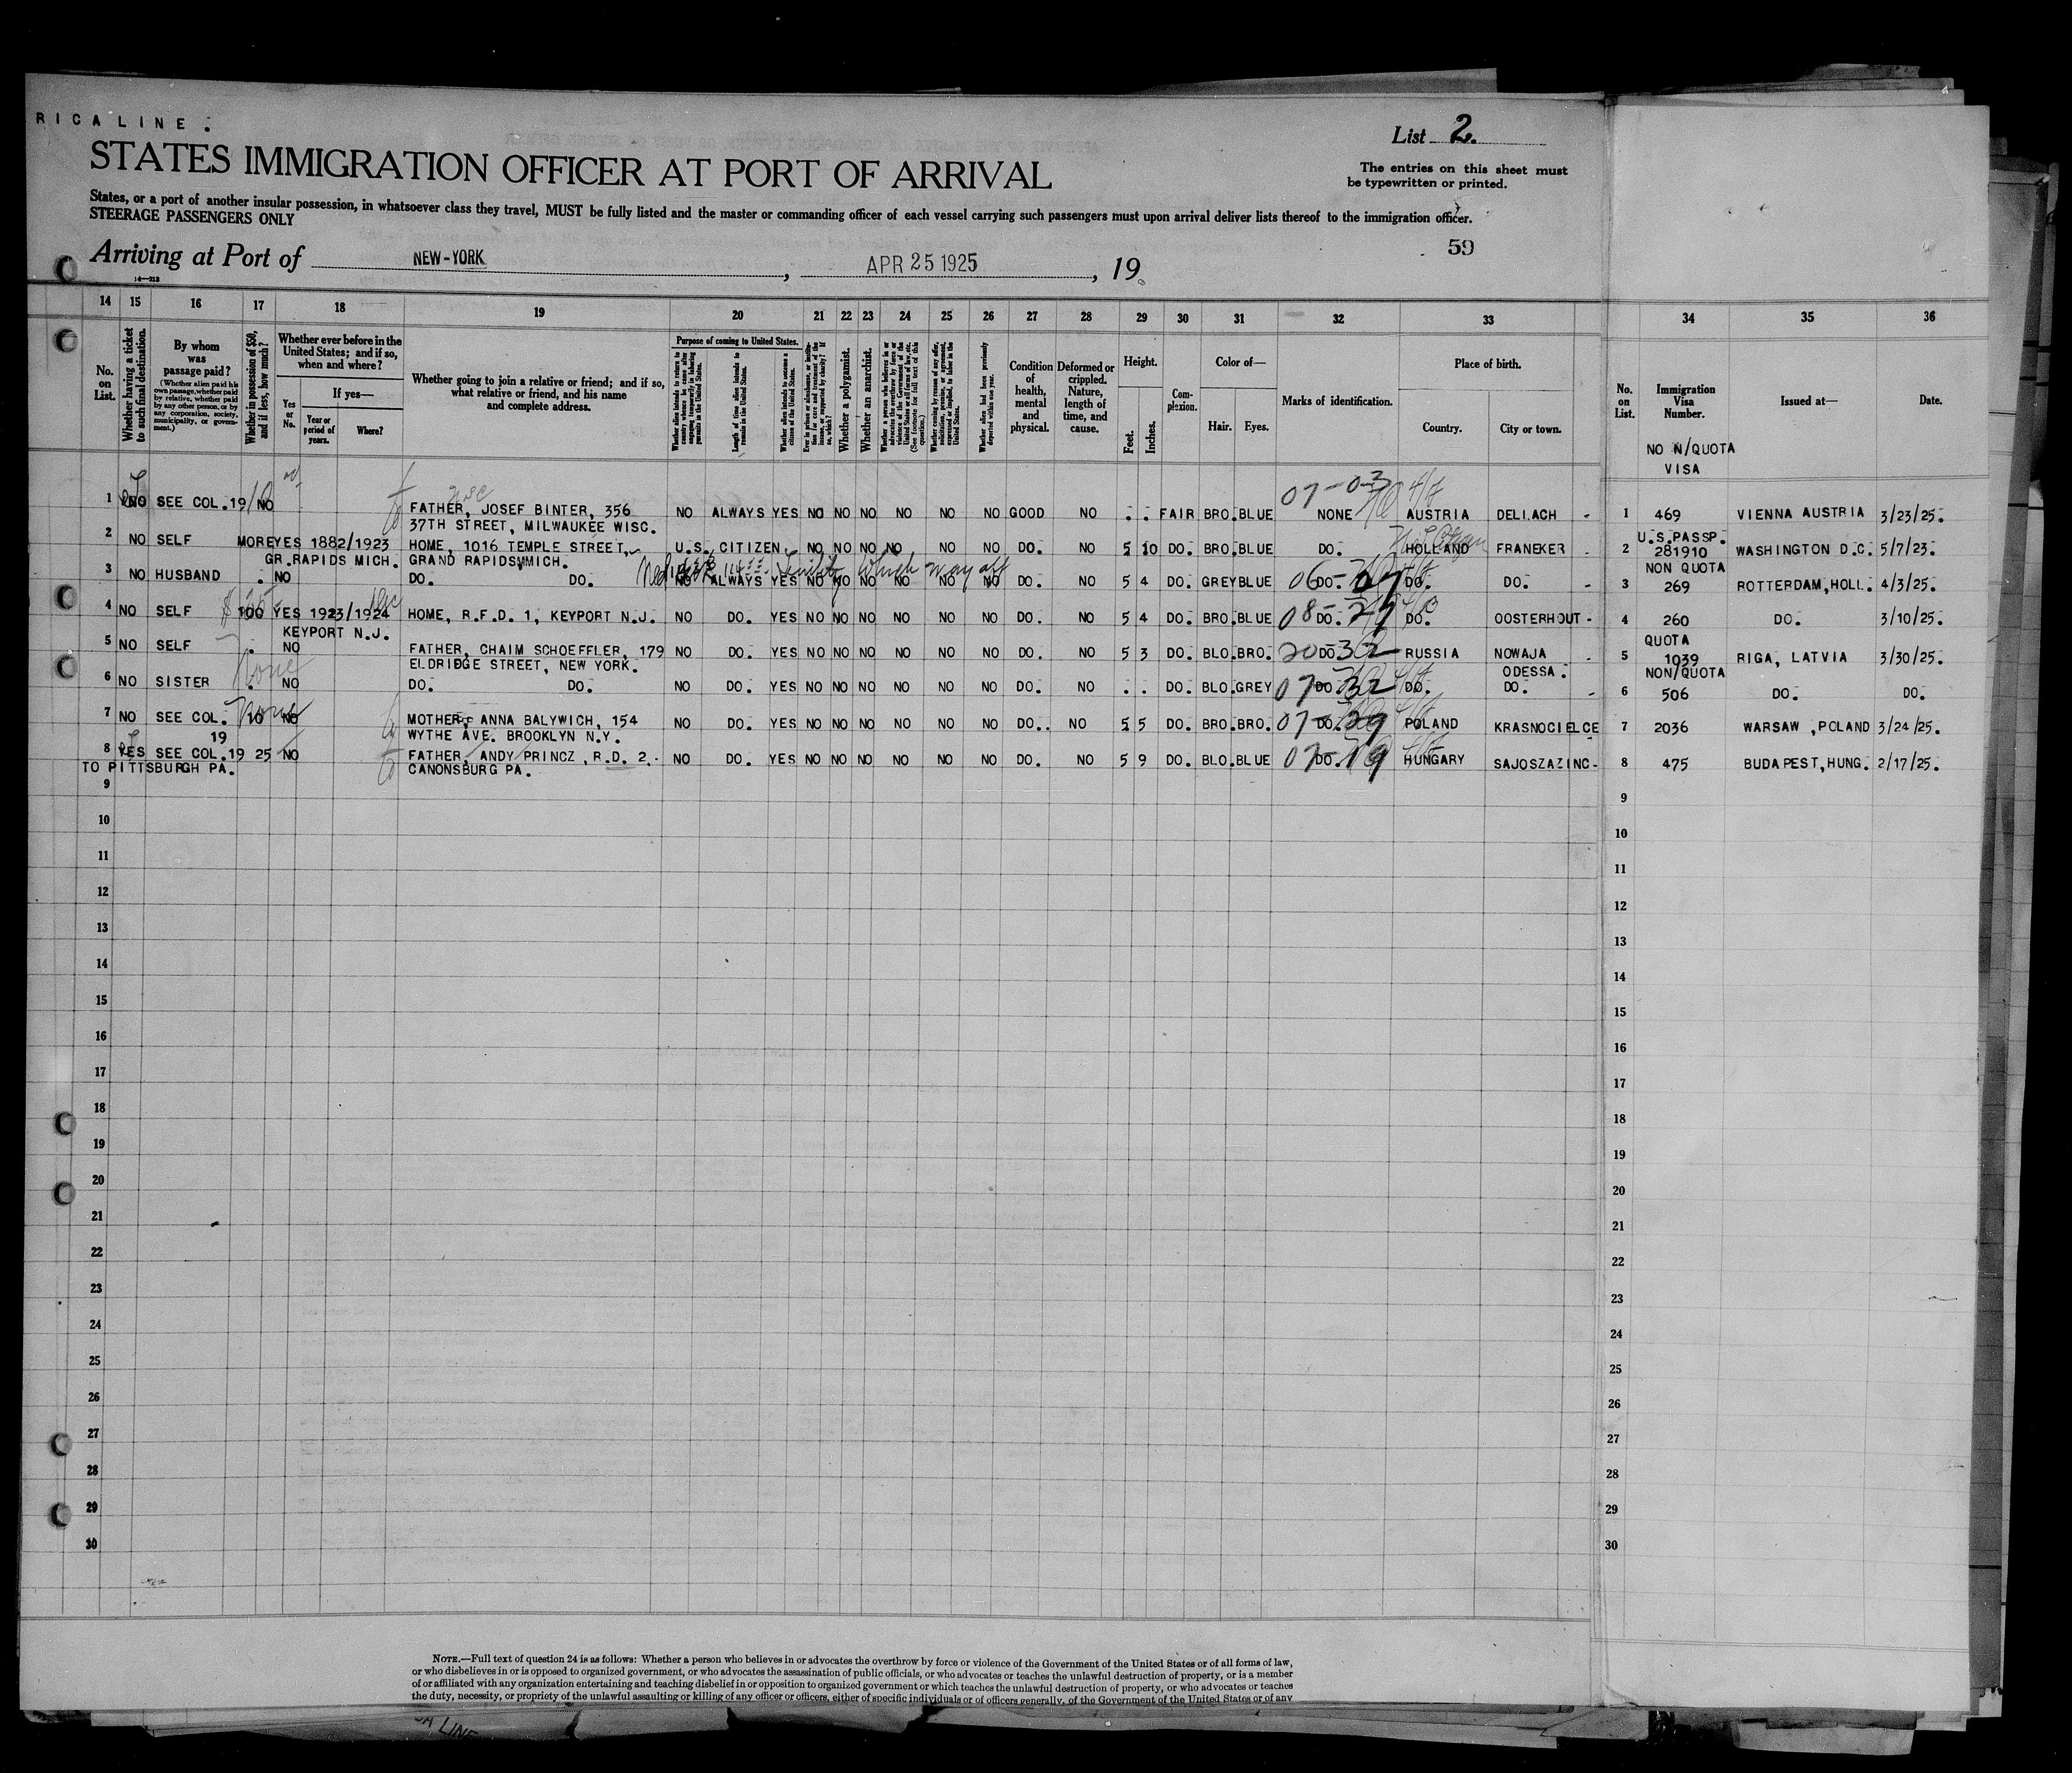 RICA LINE.
List 2.
STATES IMMIGRATION OFFICER AT PORT OF ARRIVAL
The entries on this sheet must
be typewritten or printed.
States, or a port of another insular possession, in whatsoever class they travel, MUST be fully listed and the master or commanding officer of each vessel carrying such passengers must upon arrival deliver lists thereof to the immigration officer.
STEERAGE PASSENGERS ONLY
59
Arriving at Port of NEW-YORK, APR 25 1925, 19
14 15 16 17 18 19 20 21 22 23 24 25 26 27 28 29 30 31 32 33 34 35 36
No. on List.
Whether having a ticket to such final destination.
By whom was passage paid?
(Whether alien paid his own passage, whether paid by relative, whether paid by any other person, or by any corporation, society, municipality, or government.)
Whether in possession of $50, and if less, how much?
Whether ever before in the United States; and if so, when and where?
Yes or No.
If yes—
Year or period of years.
Where?
Whether going to join a relative or friend; and if so, what relative or friend, and his name and complete address.
Purpose of coming to United States.
Whether alien intends to return to country whence he came after engaging temporarily in laboring pursuits in the United States.
Length of time alien intends to remain in the United States.
Whether alien intends to become a citizen of the United States.
Whether a polygamist.
Whether an anarchist.
Condition of health, mental and physical.
Deformed or crippled. Nature, length of time, and cause.
Height.
Feet.
Inches.
Complexion.
Color of—
Hair. Eyes.
Marks of identification.
Place of birth.
Country. City or town.
No. on List.
Immigration Visa Number.
Issued at—
Date.
NO N/QUOTA
VISA
1 NO SEE COL.19 NO FATHER, JOSEF BINTER, 356 NO ALWAYS YES NO NO NO NO NO NO GOOD NO . . FAIR BRO. BLUE NONE AUSTRIA DELLACH - 1 469 VIENNA AUSTRIA 3/23/25.
37TH STREET, MILWAUKEE WISC.
U.S.PASSP.
2 NO SELF MORE YES 1882/1923 HOME, 1016 TEMPLE STREET, U.S. CITIZEN. NO NO NO NO NO NO DO. NO 5 10 DO. BRO. BLUE DO. HOLLAND FRANEKER - 2 281910 WASHINGTON D.C. 5/7/23.
GR.RAPIDS MICH. GRAND RAPIDS MICH.
NON QUOTA
3 NO HUSBAND . NO DO. DO. NO ALWAYS YES NO NO NO NO NO NO DO. NO 5 4 DO. GREY BLUE DO. DO. DO. - 3 269 ROTTERDAM, HOLL. 4/3/25.
4 NO SELF 100 YES 1923/1924 HOME, R.F.D. 1, KEYPORT N.J. NO DO. YES NO NO NO NO NO NO DO. NO 5 4 DO. BRO. BLUE DO. DO. OOSTERHOUT - 4 260 DO. 3/10/25.
KEYPORT N.J.
QUOTA
5 NO SELF . NO FATHER, CHAIM SCHOEFFLER, 179 NO DO. YES NO NO NO NO NO NO DO. NO 5 3 DO. BLO. BRO. DO. RUSSIA NOWAJA - 5 1039 RIGA, LATVIA 3/30/25.
ELDRIDGE STREET, NEW YORK. ODESSA.
NON/QUOTA
6 NO SISTER . NO DO. DO. NO DO. YES NO NO NO NO NO NO DO. NO . . DO. BLO. GREY DO DO. DO. - 6 506 DO. DO.
7 NO SEE COL. 10 NO MOTHER, ANNA BALYWICH, 154 NO DO. YES NO NO NO NO NO NO DO.. NO 5 5 DO. BRO. BRO. DO. POLAND KRASNOCIELCE 7 2036 WARSAW, POLAND 3/24/25.
19 WYTHE AVE. BROOKLYN N.Y.
8 YES SEE COL.19 25 NO FATHER, ANDY PRINCZ, R.D. 2. NO DO. YES NO NO NO NO NO NO DO. NO 5 9 DO. BLO. BLUE DO. HUNGARY SAJOSZAZINC- 8 475 BUDAPEST, HUNG. 2/17/25.
TO PITTSBURGH PA. CANONSBURG PA.
9 9
10 10
11 11
12 12
13 13
14 14
15 15
16 16
17 17
18 18
19 19
20 20
21 21
22 22
23 23
24 24
25 25
26 26
27 27
28 28
29 29
30 30
NOTE.—Full text of question 24 is as follows: Whether a person who believes in or advocates the overthrow by force or violence of the Government of the United States or of all forms of law,
or who disbelieves in or is opposed to organized government, or who advocates the assassination of public officials, or who advocates or teaches the unlawful destruction of property, or is a member
of or affiliated with any organization entertaining and teaching disbelief in or opposition to organized government or which teaches the unlawful destruction of property, or who advocates or teaches
the duty, necessity, or propriety of the unlawful assaulting or killing of any officer or officers, either of specific individuals or of officers generally, of the Government of the United States or of any
LINE